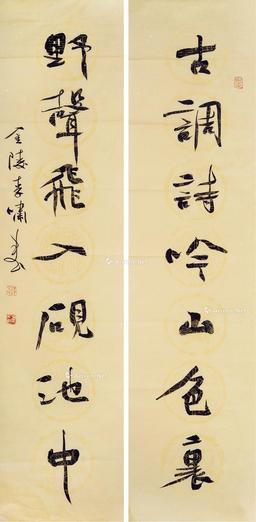 古調詩吟山色裏
野聲飛入硯池中
金陵李嘯書